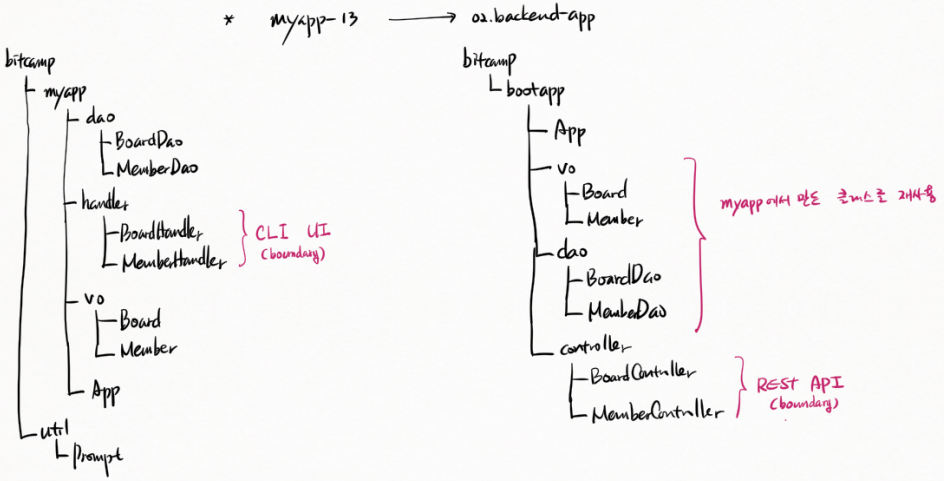 * myapp-13 → 02.backend-app
bitcamp
myapp
dao
BoardDao
MemberDao
handler
BoardHandler
MemberHandler
CLI UI
(boundary)
vo
Board
Member
App
util
Prompt
bitcamp
bootapp
App
vo
Board
Member
dao
BoardDao
MemberDao
myapp에서 만든 클래스를 재사용
controller
BoardController
MemberController
REST API
(boundary)